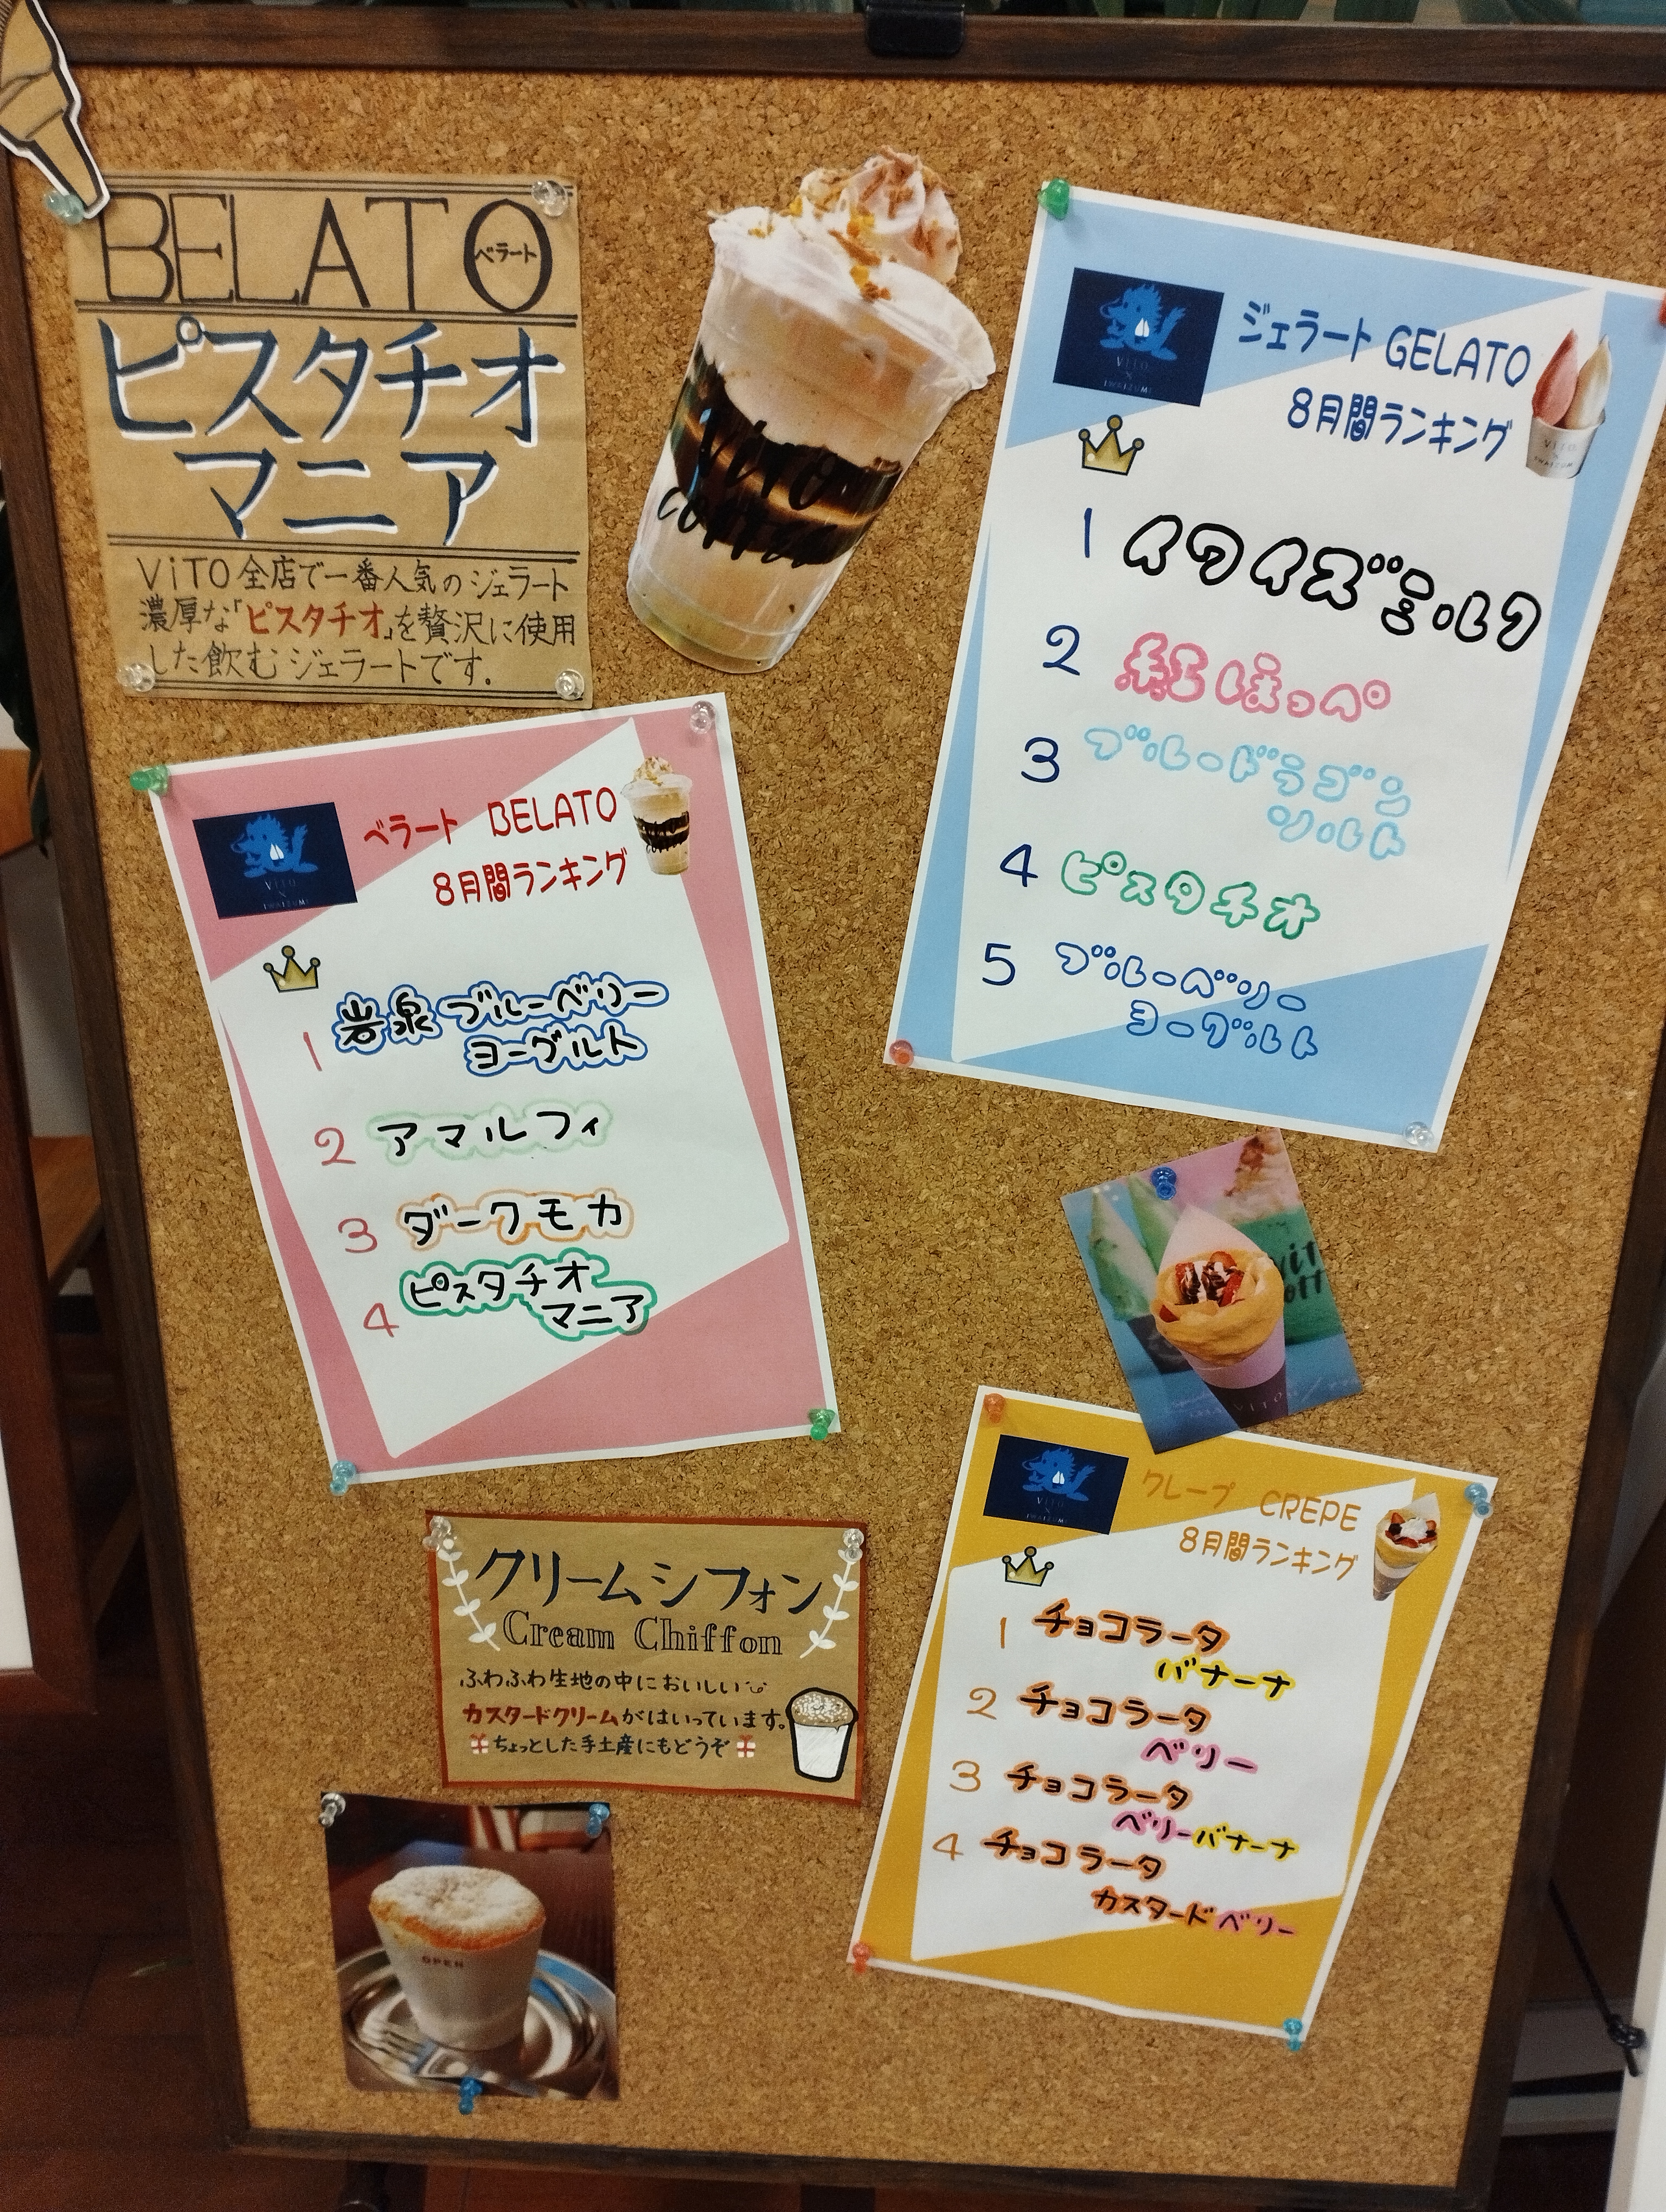 BELATO
ベラート
ピスタチオ
マニア
ViTO全店で一番人気のジェラート
濃厚な「ピスタチオ」を贅沢に使用
した飲むジェラートです。
ViTO
COFFEE
ViTO
×
IWAIZUMI
ジェラート GELATO
8月間ランキング
1 イワイズミルク
2 紅ほっぺ
3 ブルードラゴン
ソルト
4 ピスタチオ
5 ブルーベリー
ヨーグルト
ViTO
×
IWAIZUMI
ベラート BELATO
8月間ランキング
1 岩泉ブルーベリー
ヨーグルト
2 アマルフィ
3 ダークモカ
4 ピスタチオ
マニア
クリームシフォン
Cream Chiffon
ふわふわ生地の中においしい
カスタードクリームがはいっています。
ちょっとした手土産にもどうぞ
OPEN
ViTO
×
IWAIZUMI
クレープ CREPE
8月間ランキング
1 チョコラータ
バナーナ
2 チョコラータ
ベリー
3 チョコラータ
ベリーバナーナ
4 チョコラータ
カスタードベリー